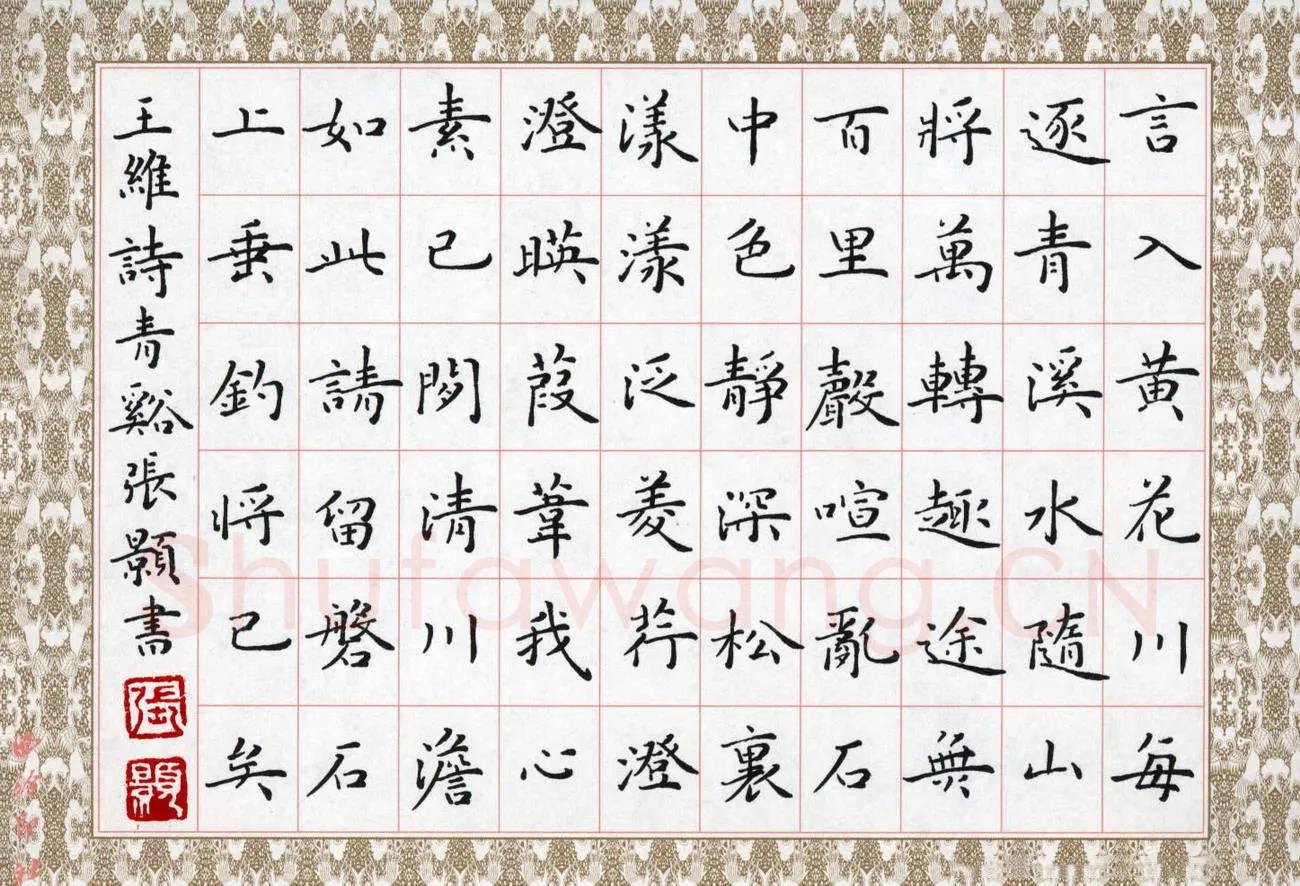 言入黄花川每
逐青溪水隨山
將萬轉趣途無
百里聲喧亂石
中色靜深松裏
漾漾泛菱荇澄
澄暎葭葦我心
素已閑清川澹
如此請留磐石
上垂釣将已矣
王維詩青谿張顥書
張
顥
Shufawang.CN
西泠印社